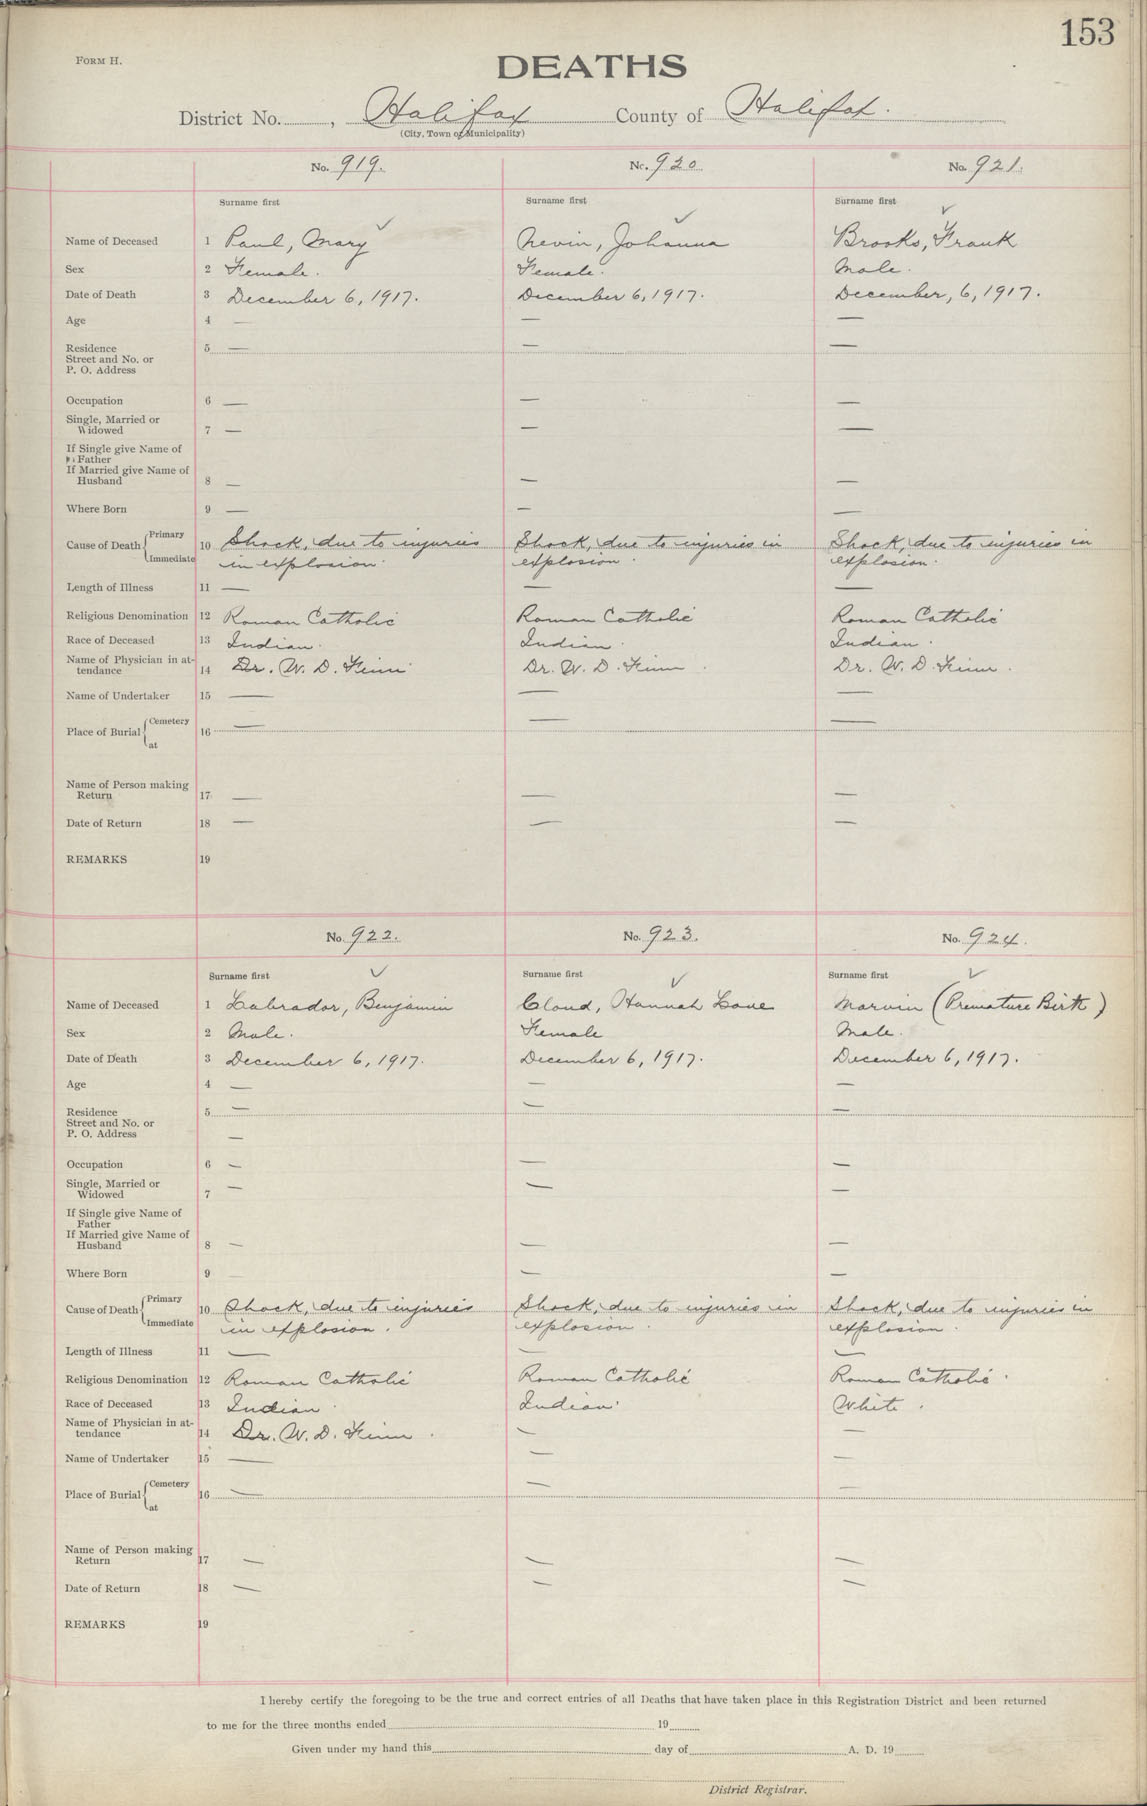 153
FORM H.
DEATHS
District No. , Halifax County of Halifax.
(City, Town or Municipality)
No. 919. No. 920 No. 921.
Surname first Surname first Surname first
Name of Deceased 1 Paul, Mary Nevin, Johanna Brooks, Frank
Sex 2 Female. Female. Male.
Date of Death 3 December 6, 1917. December 6, 1917. December, 6, 1917.
Age 4 — — —
Residence 5 — — —
Street and No. or
P. O. Address
Occupation 6 — — —
Single, Married or
Widowed 7 — — —
If Single give Name of
Father
If Married give Name of
Husband 8 — — —
Where Born 9 — — —
Primary
Cause of Death 10 Shock, due to injuries Shock, due to injuries in Shock, due to injuries in
Immediate in explosion. explosion. explosion.
Length of Illness 11 — — —
Religious Denomination 12 Roman Catholic Roman Catholic Roman Catholic
Race of Deceased 13 Indian. Indian. Indian.
Name of Physician in at-
tendance 14 Dr. W. D. Finn Dr. W. D. Finn. Dr. W. D. Finn.
Name of Undertaker 15 — — —
Cemetery — — —
Place of Burial 16
at
Name of Person making
Return 17 — — —
Date of Return 18 — — —
REMARKS 19
No. 922. No. 923. No. 924.
Surname first Surname first Surname first
Name of Deceased 1 Labrador, Benjamin Cloud, Hannah Lone Marvin (Premature Birth)
Sex 2 Male. Female Male.
Date of Death 3 December 6, 1917. December 6, 1917. December 6, 1917.
Age 4 — — —
Residence 5 — — —
Street and No. or
P. O. Address —
Occupation 6 — — —
Single, Married or
Widowed 7 — — —
If Single give Name of
Father
If Married give Name of
Husband 8 — — —
Where Born 9 — — —
Primary
Cause of Death 10 Shock, due to injuries Shock, due to injuries in Shock, due to injuries in
Immediate in explosion. explosion. explosion.
Length of Illness 11 — — —
Religious Denomination 12 Roman Catholic Roman Catholic Roman Catholic.
Race of Deceased 13 Indian. Indian. White.
Name of Physician in at-
tendance 14 Dr. W. D. Finn. — —
Name of Undertaker 15 — — —
Cemetery — — —
Place of Burial 16
at
Name of Person making
Return 17 — — —
Date of Return 18 — — —
REMARKS 19
I hereby certify the foregoing to be the true and correct entries of all Deaths that have taken place in this Registration District and been returned
to me for the three months ended 19
Given under my hand this day of A. D. 19
District Registrar.